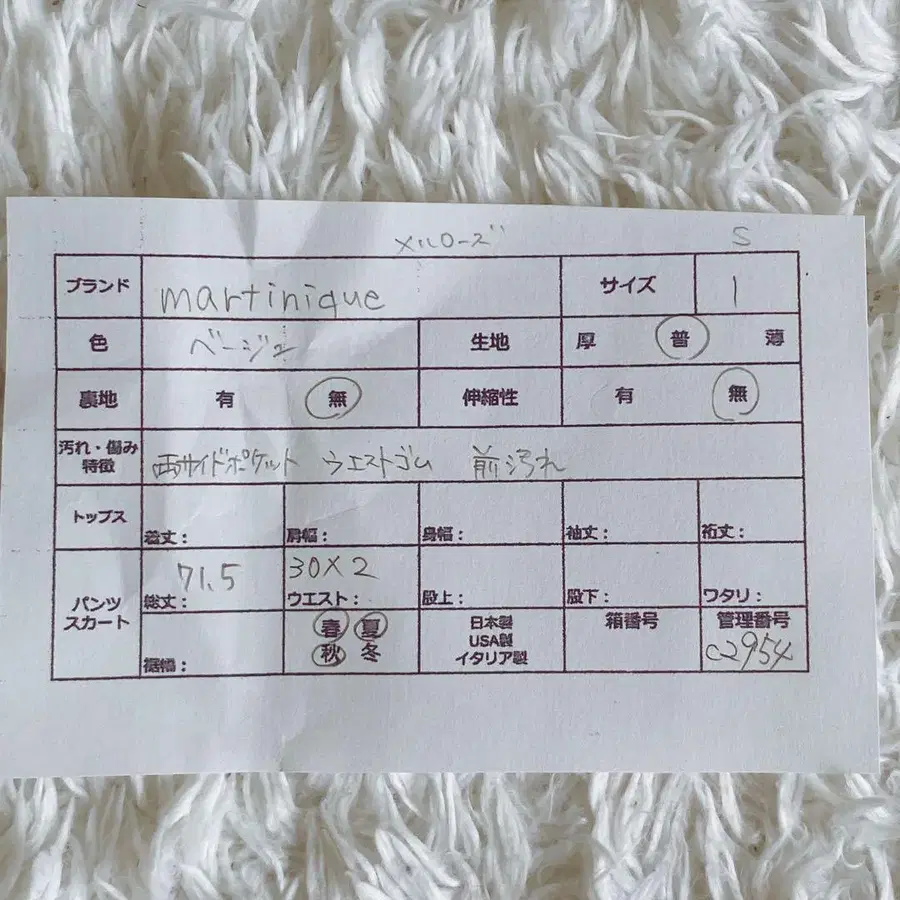 メルローズ S
ブランド martinique サイズ 1
色 ベージュ 生地 厚 普 薄
裏地 有 無 伸縮性 有 無
汚れ・傷み
特徴 両サイドポケット ウエストゴム 前汚れ
トップス 着丈： 肩幅： 身幅： 袖丈： 裄丈：
71.5 30×2
パンツ
スカート 総丈： ウエスト： 股上： 股下： ワタリ：
裾幅： 春 夏 日本製 箱番号 管理番号
秋 冬 USA製 c2954
イタリア製